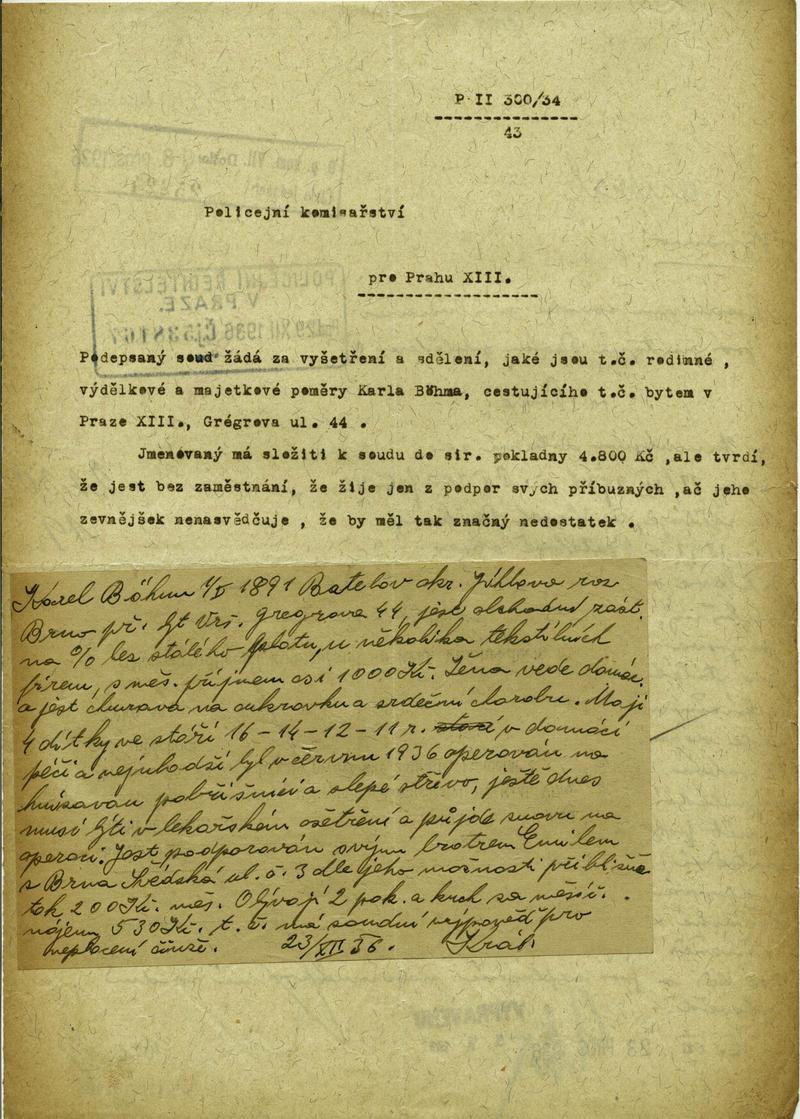 P II 300/34
43
Policejní komisařství
pro Prahu XIII.
Podepsaný soud žádá za vyšetření a sdělení, jaké jsou t.č. rodinné ,
výdělkové a majetkové poměry Karla Böhma, cestujícího t.č. bytem v
Praze XIII., Grégrova ul. 44 .
Jmenovaný má složiti k soudu do sir. pokladny 4.800 Kč ,ale tvrdí,
že jest bez zaměstnání, že žije jen z podpor svých příbuzných ,ač jeho
zevnějšek nenasvědčuje , že by měl tak značný nedostatek .
Karel Böhm 1891 Batelov okr. Jihlava
Brno Gregrova 44, jest obchodní zást.
na % bez stálého platu, u několika tekstilních
firem, s měs. příjmem asi 1000 Kč. Žena vede domác.
a jest churava na cukrovku a srdeční chorobu. Mají
4 dítky ve stáří 16 - 14 - 12 - 11 r. v domácí
péči a byl v červnu 1936 operován na
pobřišnici a slepé střevo, ještě dnes
musí býti v lékařském ošetření a půjde znovu na
operaci. Jest podporován svým bratrem Emilem
z Brna ul. č. 3 dle jeho možnosti přibližně
tak 200 Kč. měs. Obývají 2 pok. a kuch za měsíč.
nájem 530 Kč. t. č. má soudní výpověď pro
neplacení činže. 23/XII 36. Král
POLICEJNÍ ŘEDITELSTVÍ
V PRAZE.
29 XII 1936